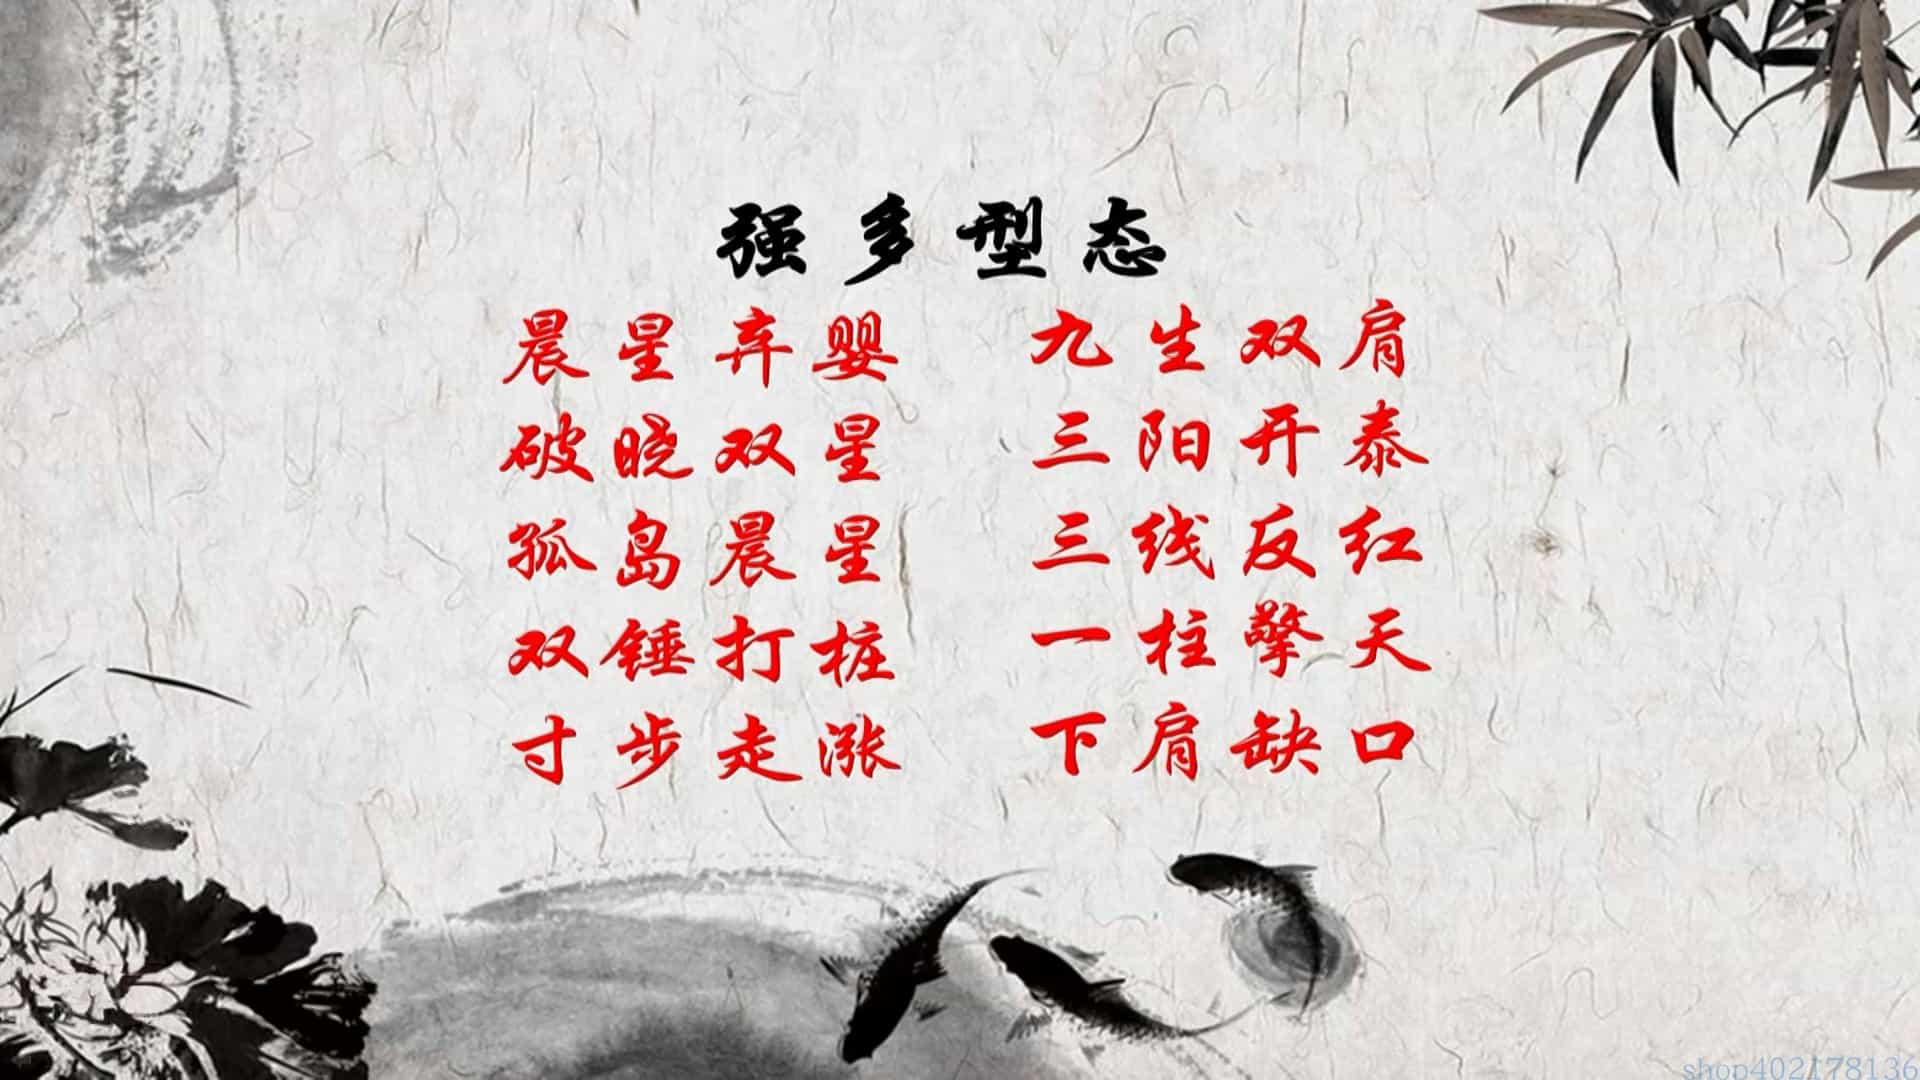 强多型态
晨星弃婴 九生双肩
破晓双星 三阳开泰
孤岛晨星 三线反红
双锤打桩 一柱擎天
寸步走涨 下肩缺口
shop402178136